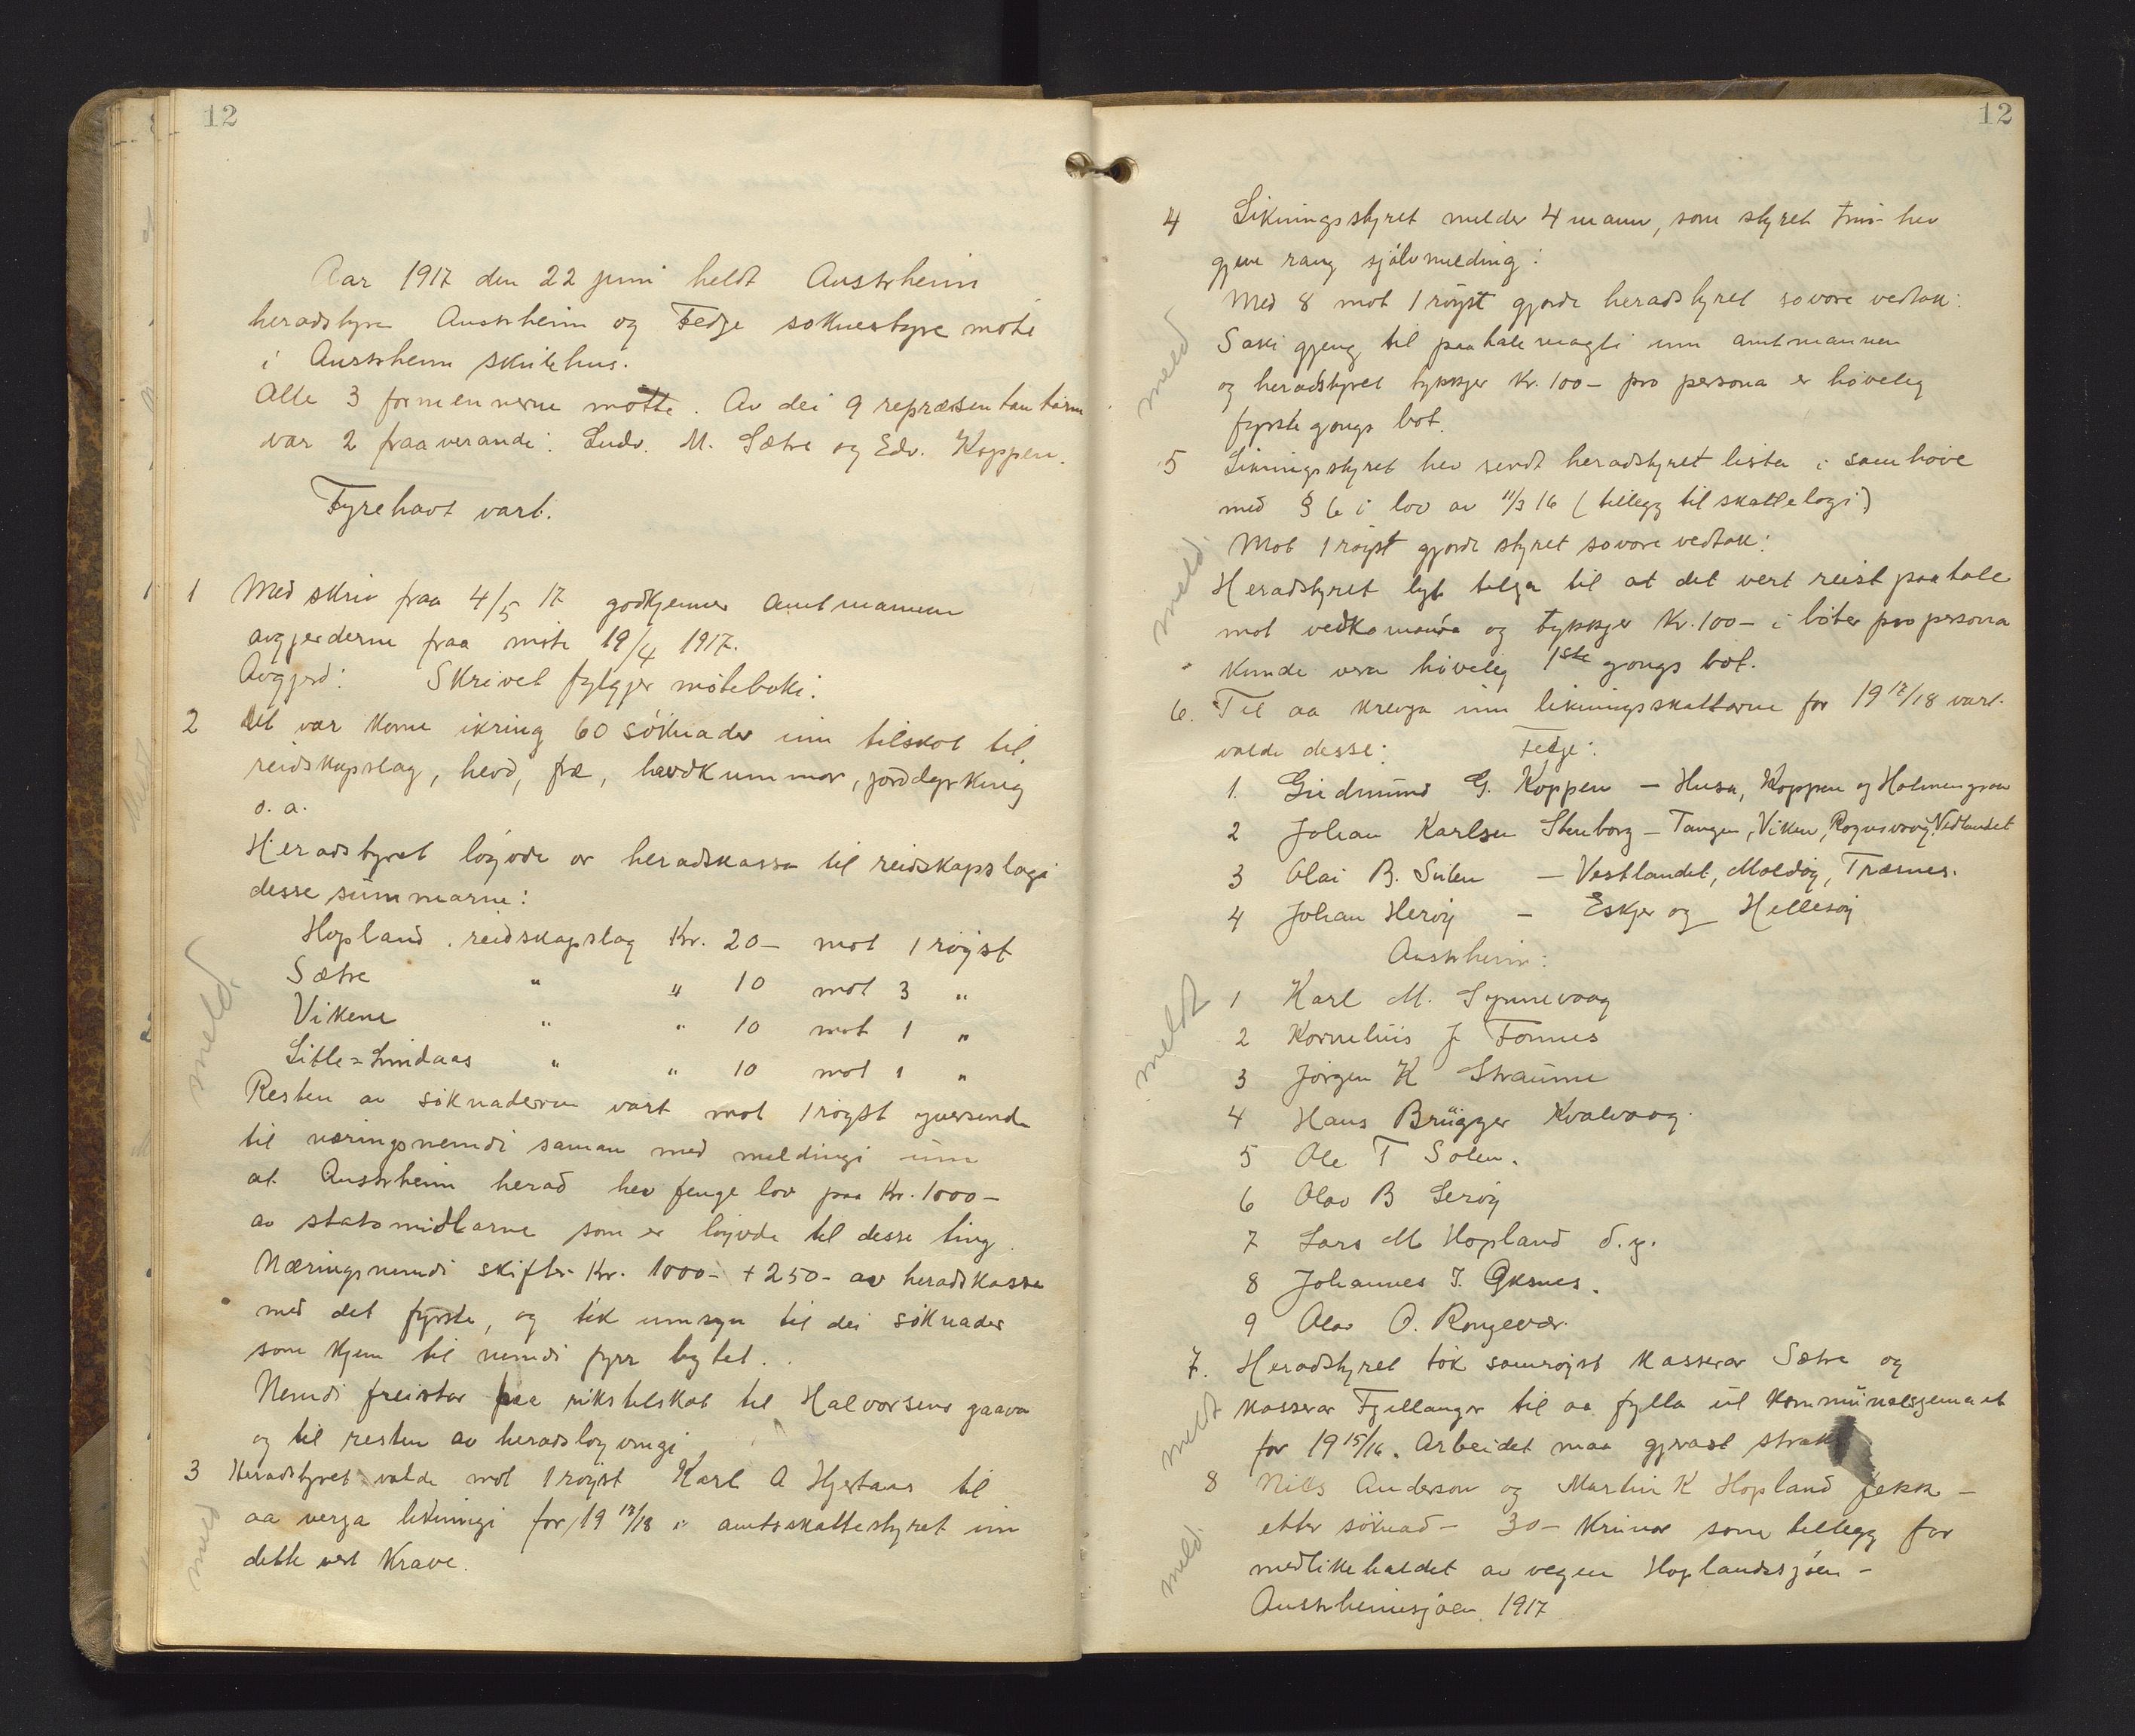 12
Aar 1917 den 22 juni heldt Austrheim
heradstyre Austrheim og Fedje soknestyre møte
i Austrheim skulehus.
Alle 3 formennerne møtte. Av dei 9 repræsentantarne
var 2 fraaverande: Ludv. M. Sætre og Edv. Koppen.
Fyrehavt vart.
1 Med skriv fraa 4/5 17 godkjenner amtmannen
avgjerderne fraa møte 19/4 1917.
Avgjerd: Skrivet fylgjer møteboki.
2 Det var kome ikring 60 søknader um tilskot til
reidskapslag, hevd, frø, hevdkummar, jorddyrking
o. a.
Heradstyret løyvde or heradskassa til reidskapslagi
desse summarne:
Hopland reidskapslag Kr. 20- mot 1 røyst
Sætre " " 10 mot 3 "
Vikene " " 10 mot 1 "
Litle=Lindaas " " 10 mot 1 "
meld.
Resten av søknaderne vart mot 1 røyst yversende
til næringsnemdi saman med meldingi um
at Austrheim herad hev fenge lov paa Kr. 1000-
av statsmidlarne som er løyvde til desse ting.
Næringsnemdi skifter Kr. 1000- + 250- av heradskassa
med det fyrste, og tek umsyn til dei søknader
som kjem til nemdi fyrr bytet.
Nemdi freistar faa rikstilskot til Halvorsens gaava
og til resten av heradsløyvingi
3 Heradstyret valde mot 1 røyst Karl A Hjertaas til
aa verja likningi for 1917/18 i amtsskattestyret um
dette vert krave.
meld
12
4 Likningsstyret melder 4 mann, som styret trur hev
gjeve rang sjølvmelding:
Med 8 mot 1 røyst gjorde heradstyret sovore vedtak:
Saki gjeng til paatalemagti um amtmannen
og heradstyret tykkjer Kr. 100- pro persona er høveleg
fyrste gongs bot.
meld
5 Likningsstyret hev sendt heradstyret lista i samhøve
med § 6 i lov av 11/3 16 (tillegg til skattelogi)
Mot 1 røyst gjorde styret sovore vedtak:
Heradstyret lyt telja til at det vert reist paatale
mot vedkomande og tykkjer Kr. 100- i bøter pro persona
kunde vera høveleg 1ste gongs bot.
meld.
6. Til aa krevja inn likningsskattarne for 1917/18 vart
valde desse: Fedje:
1. Gudmund G. Koppen - Husa, Koppen og Holmengraa
2 Johan Karlsen Stenborg - Tangen, Viken, Rognsvaag, Vedlandet
3 Olai B. Sulen - Vestlandet, Moldøy, Træsnes.
4 Johan Herøy - Eskjer og Hellesøy
Austrheim:
1 Karl M. Synnevaag
2 Kornelius J Fonnes
3 Jørgen K Straume
4 Hans Brügger Kvalvaag
5 Ole T Solen.
6 Olav B Lerøy
7 Lars M Hopland d.y.
8 Johannes J. Øksnes.
9 Olav O. Rongevær.
meldt
7. Heradstyret tok samrøyst kasserar Sætre og
kasserar Fjellanger til aa fylla ut kommunalskjemaet
for 1915/16. Arbeidet maa gjerast straks
meldt
8 Nils Anderson og Martin K Hopland fekk -
etter søknad - 30- krunor som tillegg for
medlikehaldet av vegen Hoplandssjøen -
Austrheimsjøen 1917
meld.